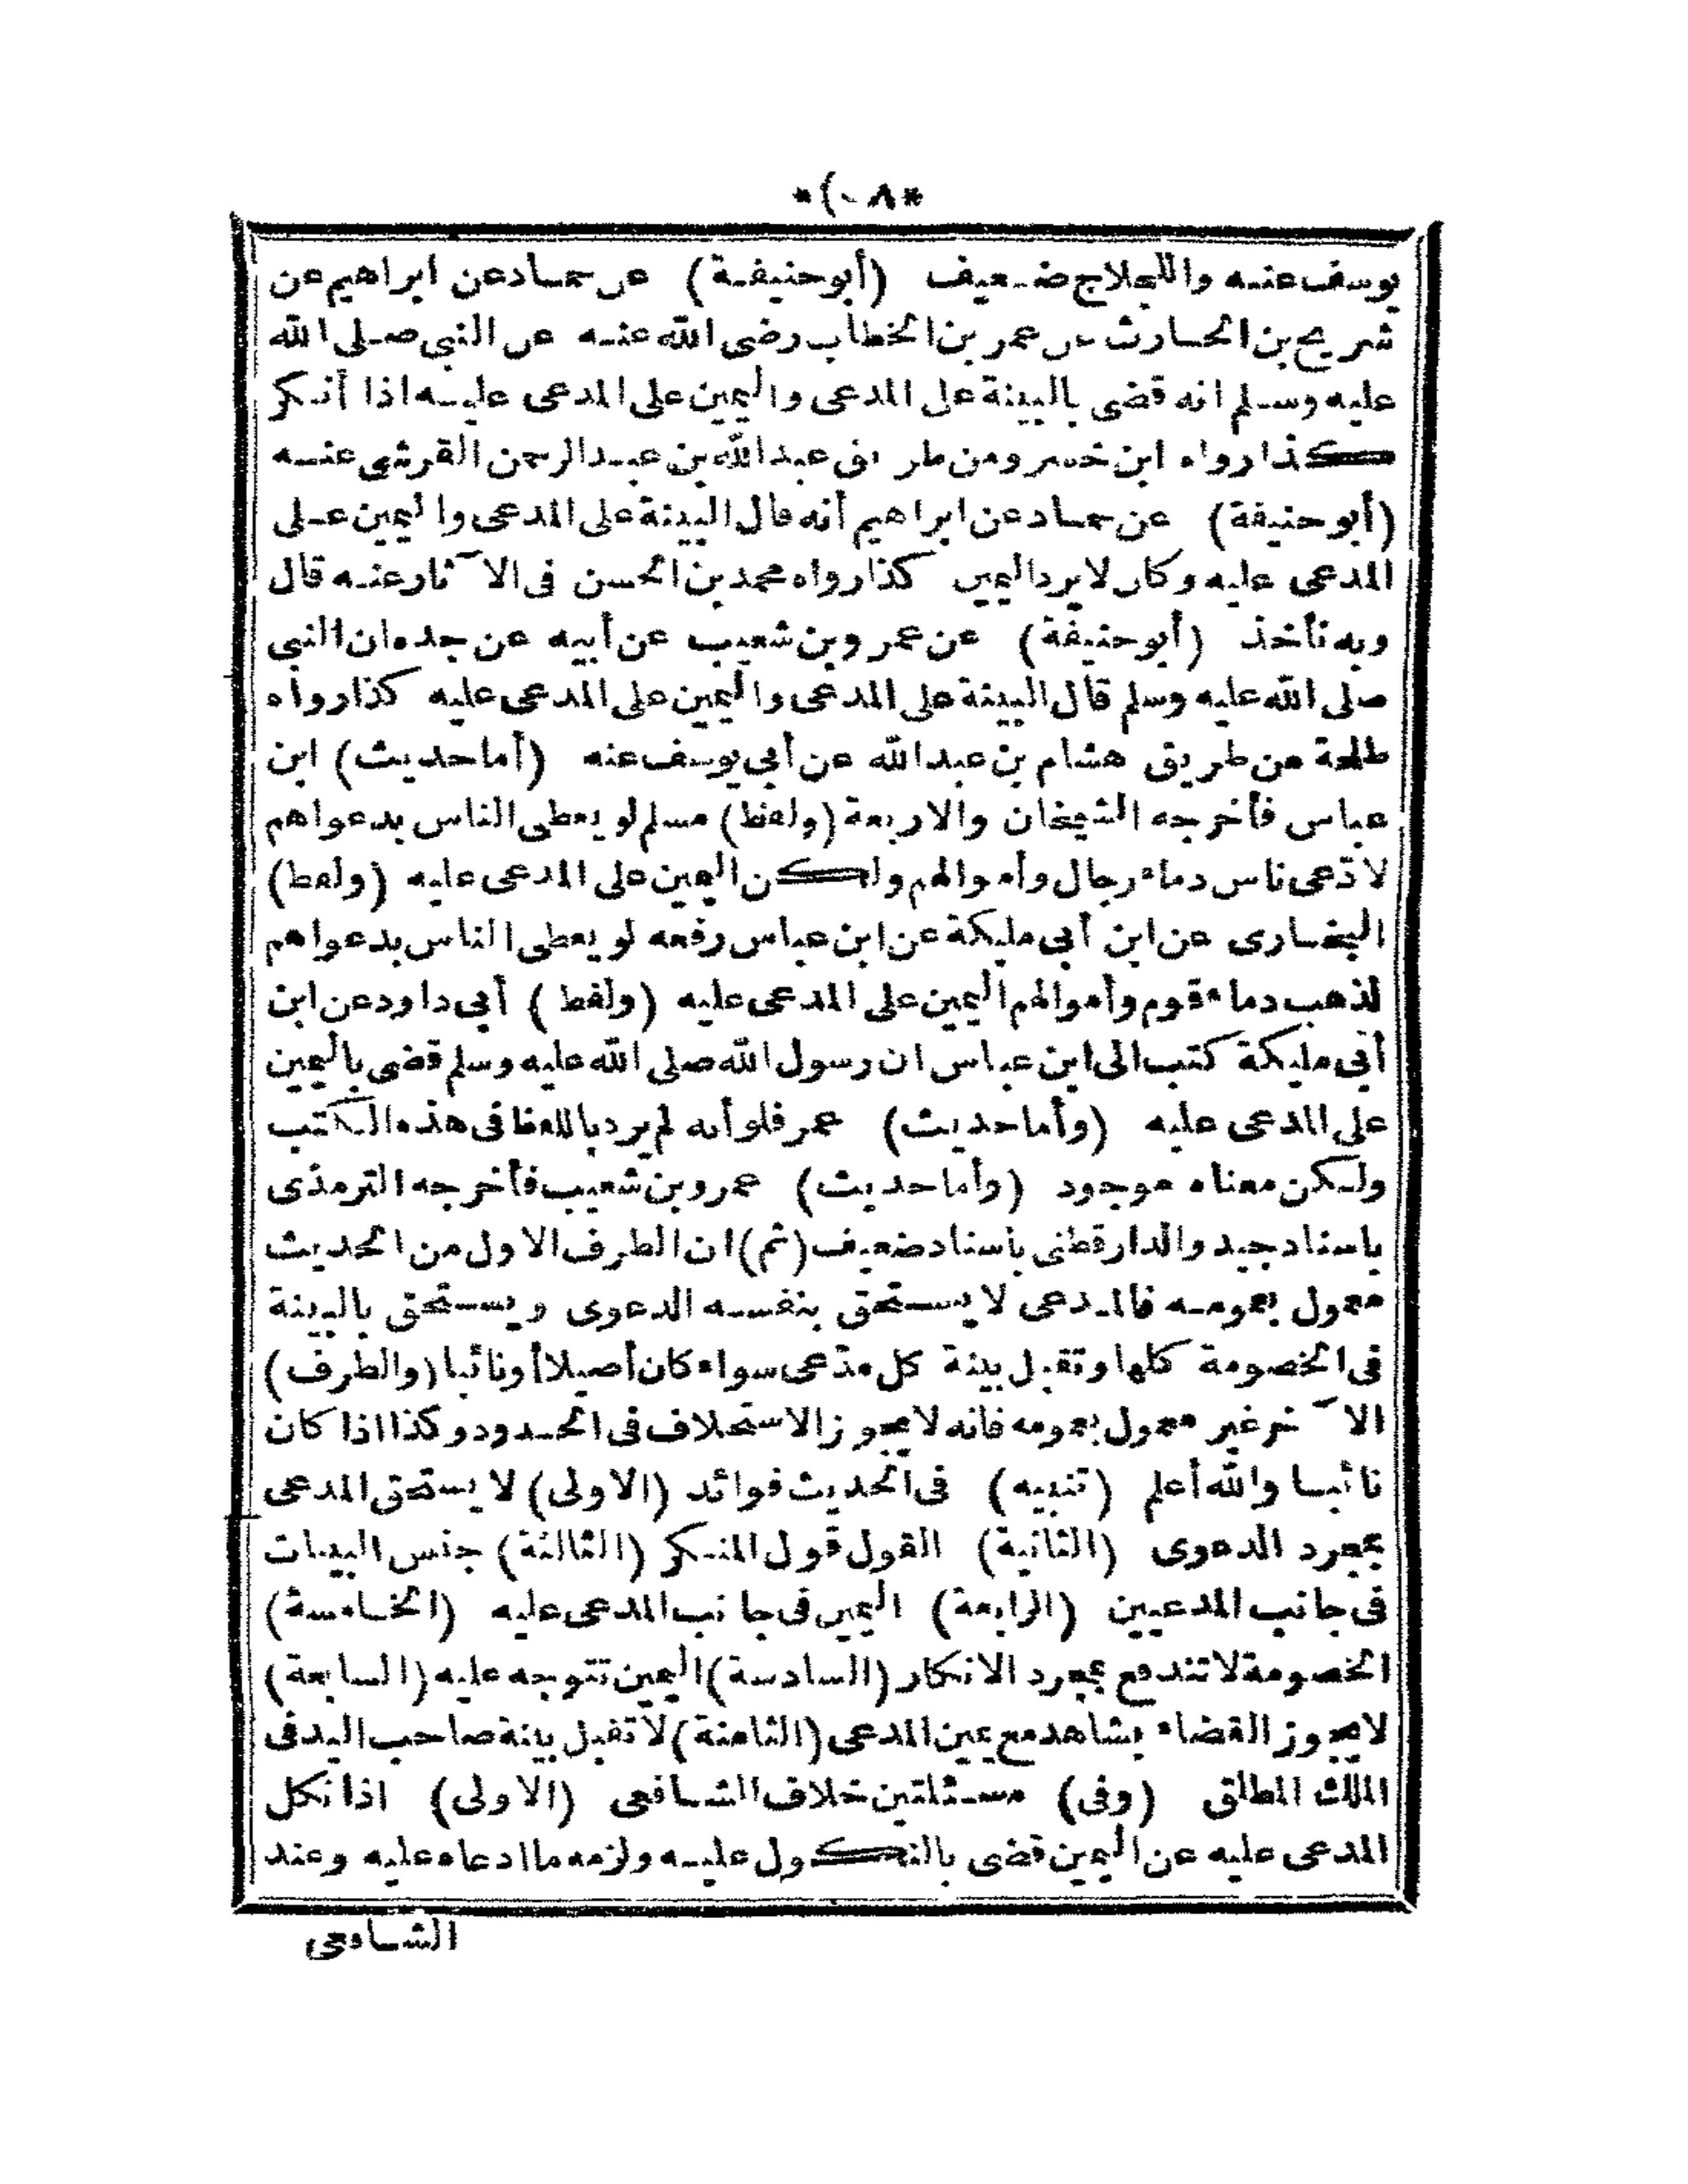 يوسف عنه واللجلاج ضعيف (أبو حنيفة) عن حماد عن ابراهيم عن
شريح بن الحارث عن عمر بن الخطاب رضى الله عنه عن النبى صلى الله
عليه وسلم انه قضى بالبينة على المدعى واليمين على المدعى عليه اذا أنكر
كذا رواه ابن خسر ومن طريق عبدالله بن عبدالرحمن القرشى عنه
(أبو حنيفة) عن حماد عن ابراهيم أنه قال البينة على المدعى واليمين على
المدعى عليه وكان لا يرد اليمين كذا رواه محمد بن الحسن فى الآثار عنه قال
وبه نأخذ (أبو حنيفة) عن عمرو بن شعيب عن أبيه عن جده ان النبى
صلى الله عليه وسلم قال البينة على المدعى واليمين على المدعى عليه كذا رواه
طلحة من طريق هشام بن عبدالله عن أبى يوسف عنه (أما حديث) ابن
عباس فأخرجه الشيخان والاربعة (ولفظ) مسلم لو يعطى الناس بدعواهم
لادّعى ناس دماء رجال وأموالهم ولكن اليمين على المدعى عليه (ولفظ)
البخارى عن ابن أبى مليكة عن ابن عباس رفعه لو يعطى الناس بدعواهم
لذهب دماء قوم وأموالهم اليمين على المدعى عليه (ولفظ) أبى داود عن ابن
أبى مليكة كتب الى ابن عباس ان رسول الله صلى الله عليه وسلم قضى باليمين
على المدعى عليه (وأما حديث) عمر فلو أنه لم يرد باللفظ فى هذه الكتب
ولكن معناه موجود (وأما حديث) عمرو بن شعيب فأخرجه الترمذى
باسناد جيد والدارقطنى باسناد ضعيف (ثم) ان الطرف الاول من الحديث
معمول بعمومه فالمدعى لا يستحق بنفسه الدعوى ويستحق بالبينة
فى الخصومة كلها وتقبل بينة كل مدّعى سواء كان أصيلا أو نائبا (والطرف)
الآخر غير معمول بعمومه فانه لا يجوز الاستحلاف فى الحدود وكذا اذا كان
نائبا والله أعلم (تنبيه) فى الحديث فوائد (الاولى) لا يستحق المدعى
بمجرد الدعوى (الثانية) القول قول المنكر (الثالثة) جنس البينات
فى جانب المدعيين (الرابعة) اليمين فى جانب المدعى عليه (الخامسة)
الخصومة لا تندفع بمجرد الانكار (السادسة) اليمين تتوجه عليه (السابعة)
لا يجوز القضاء بشاهد مع يمين المدعى (الثامنة) لا تقبل بينة صاحب اليد فى
الملك المطلق (وفى) مسئلتين خلاف الشافعى (الاولى) اذا نكل
المدعى عليه عن اليمين قضى بالنكول عليه ولزمه ما ادعاه عليه وعند
الشافعى